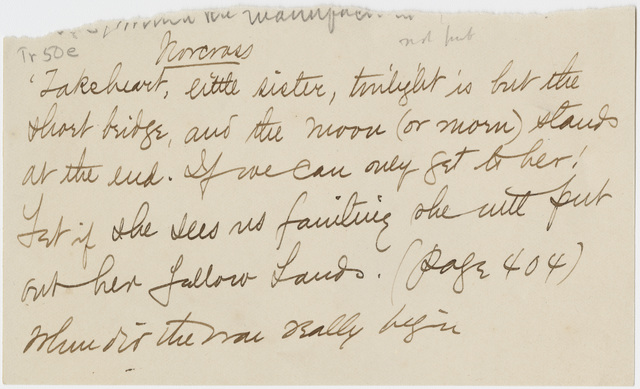 Tr 50e
Norcross
not put
'Take heart, little sister, twilight is but the
short bridge, and the moon (or morn) stands
at the end. If we can only get to her!
Yet if she sees us fainting she will put
out her yellow hands. (Page 404)
When did the war really begin